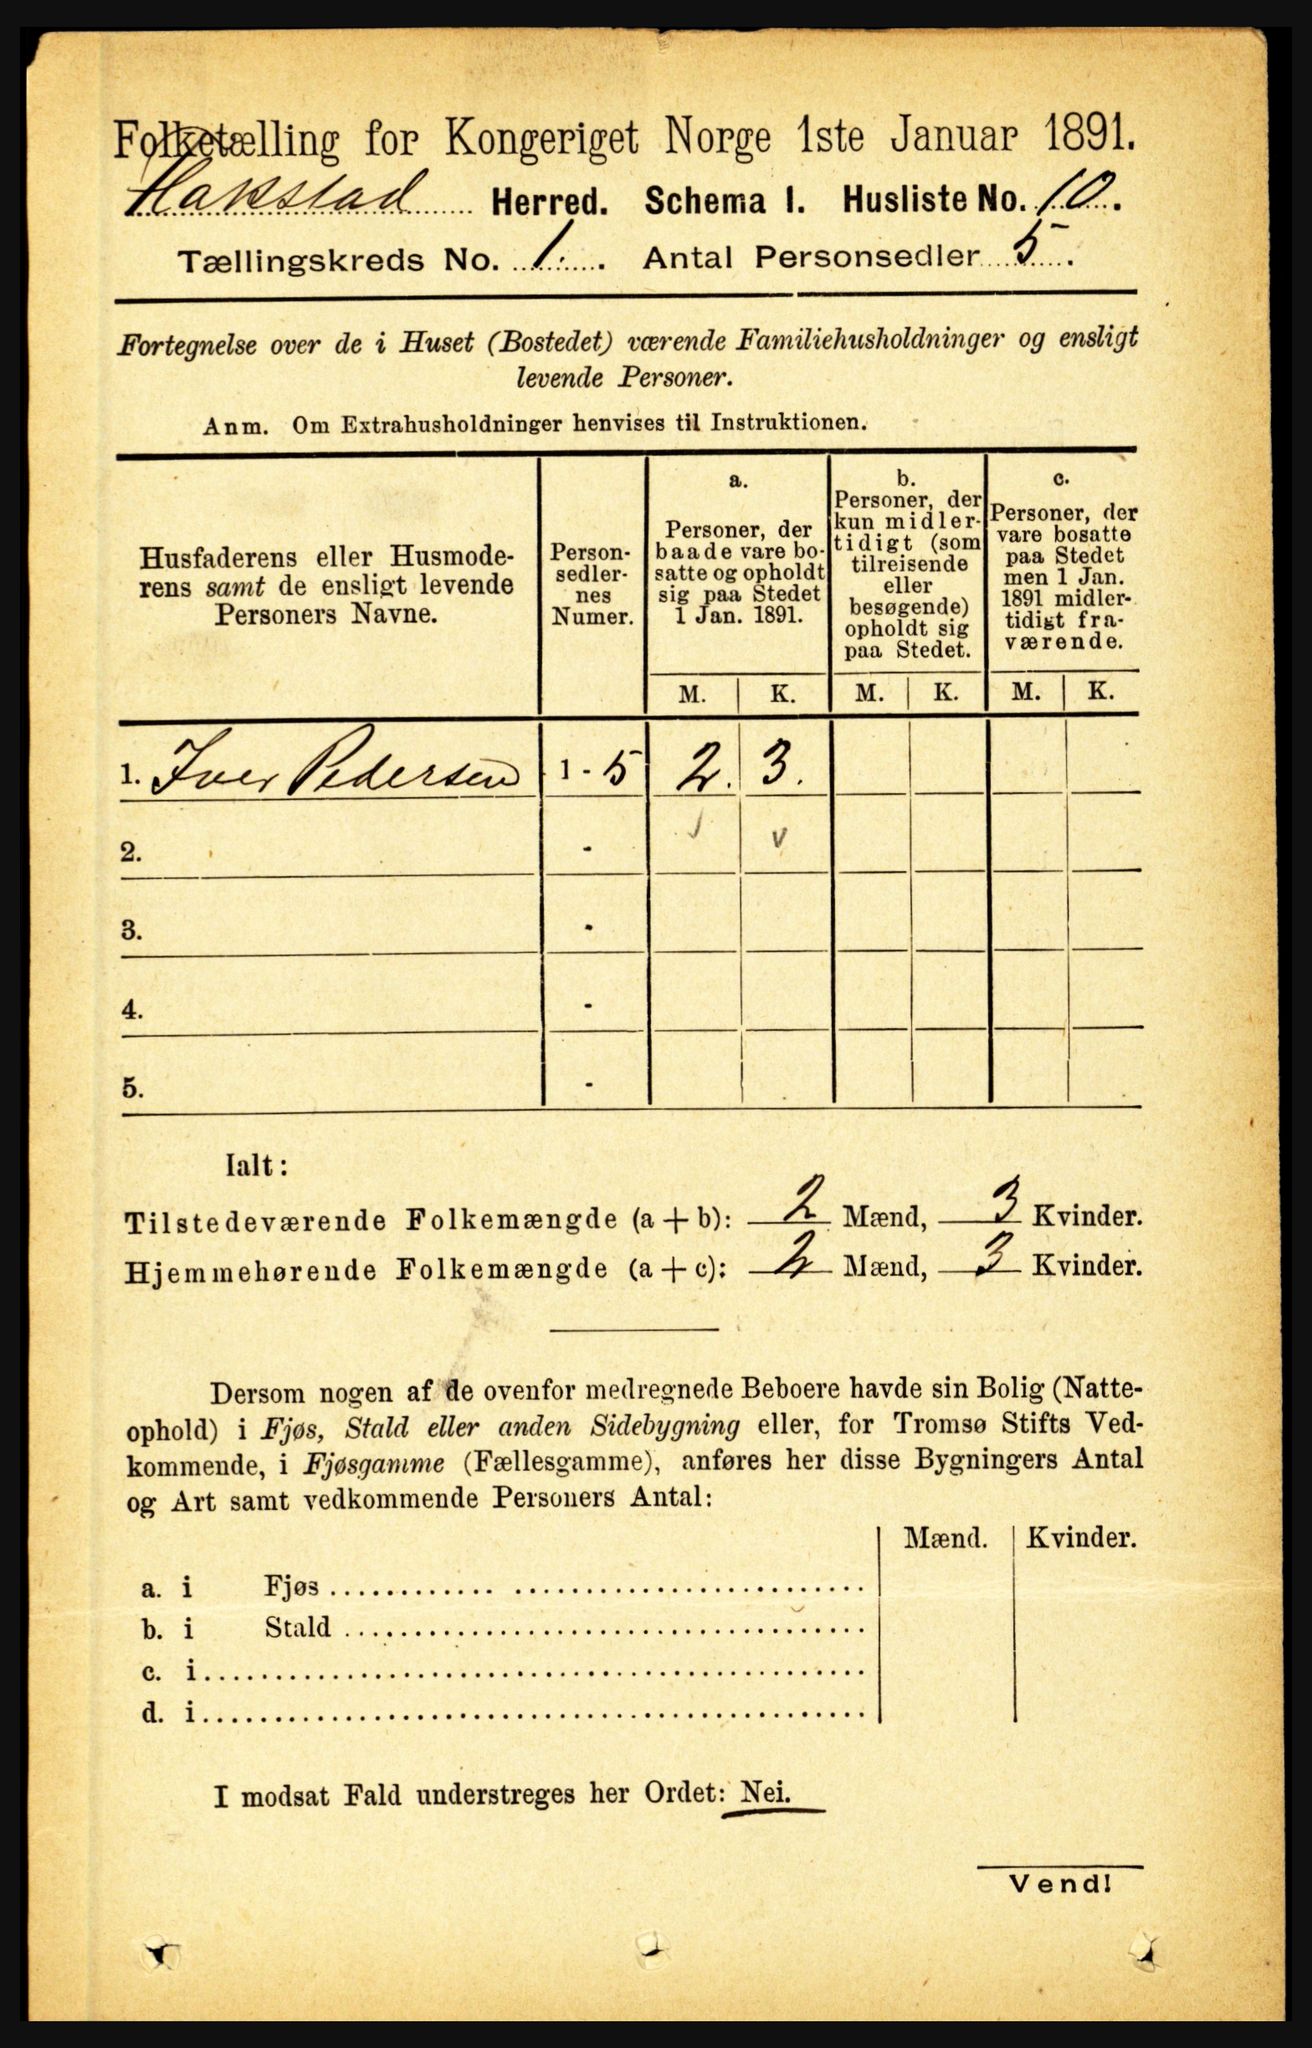 Folketælling for Kongeriget Norge 1ste Januar 1891.
Hakstad Herred. Schema I. Husliste No. 10.
Tællingskreds No. 1. Antal Personsedler 5.
Fortegnelse over de i Huset (Bostedet) værende Familiehusholdninger og ensligt
levende Personer.
Anm. Om Extrahusholdninger henvises til Instruktionen.
Husfaderens eller Husmode-
rens samt de ensligt levende
Personers Navne.
Person-
sedler-
nes
Numer.
a.
Personer, der
baade vare bo-
satte og opholdt
sig paa Stedet
1 Jan. 1891.
b.
Personer, der
kun midler-
tidigt (som
tilreisende
eller
besøgende)
opholdt sig
paa Stedet.
c.
Personer, der
vare bosatte
paa Stedet
men 1 Jan.
1891 midler-
tidigt fra-
værende.
M. K. M. K. M. K.
1. Iver Pedersen 1 - 5 2. 3.
2. - v v
3. -
4. -
5. -
Ialt:
Tilstedeværende Folkemængde (a + b): 2 Mænd, 3 Kvinder.
Hjemmehørende Folkemængde (a + c): 2 Mænd, 3 Kvinder.
Dersom nogen af de ovenfor medregnede Beboere havde sin Bolig (Natte-
ophold) i Fjøs, Stald eller anden Sidebygning eller, for Tromsø Stifts Ved-
kommende, i Fjøsgamme (Fællesgamme), anføres her disse Bygningers Antal
og Art samt vedkommende Personers Antal:
Mænd. Kvinder.
a. i Fjøs
b. i Stald
c. i
d. i
I modsat Fald understreges her Ordet: Nei.
Vend!